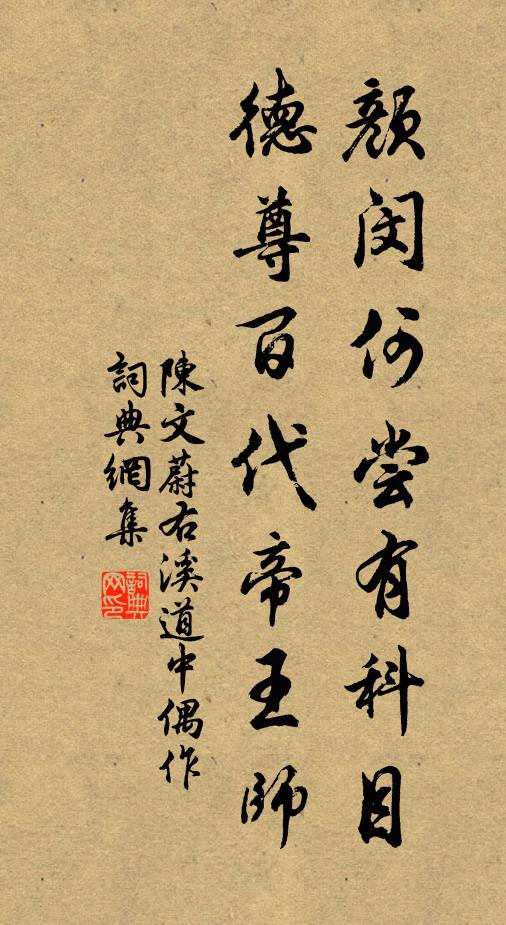 顏閔何尝有科目
德尊百代帝王師
陳文蔚右溪道中偶作
詞典網集
詞典网印